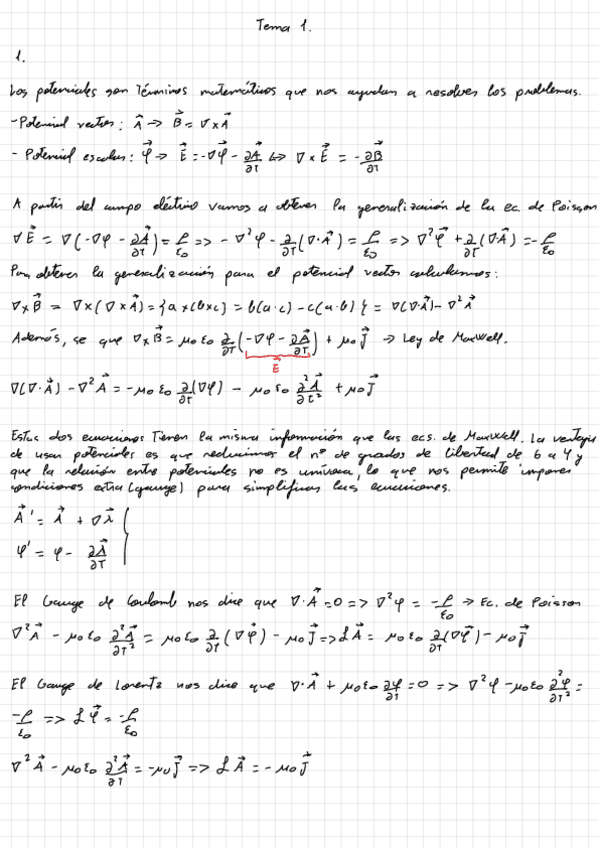 Tema 1.
1.
Los potenciales son términos matemáticos que nos ayudan a resolver los problemas.
-Potencial vector: A⃗ → B⃗ = ∇×A⃗
- Potencial escalar: φ⃗ → E⃗ = -∇φ⃗ - ∂A⃗/∂t ↔ ∇×E⃗ = -∂B⃗/∂t
A partir del campo eléctrico vamos a obtener la generalización de la ec. de Poisson
∇E⃗ = ∇(-∇φ - ∂A⃗/∂t) = ρ/ε₀ => -∇²φ - ∂/∂t(∇·A⃗) = ρ/ε₀ => ∇²φ⃗ + ∂/∂t(∇·A⃗) = -ρ/ε₀
Para obtener la generalización para el potencial vector calculamos:
∇×B⃗ = ∇×(∇×A⃗) = {a×(b×c) = b(a·c) - c(a·b)} = ∇(∇·A⃗) - ∇²A⃗
Además, se que ∇×B⃗ = μ₀ε₀ ∂/∂t(-∇φ - ∂A⃗/∂t) + μ₀J⃗ → Ley de Maxwell.
E⃗
∇(∇·A⃗) - ∇²A⃗ = -μ₀ε₀ ∂/∂t(∇φ) - μ₀ε₀ ∂²A⃗/∂t² + μ₀J⃗
Estas dos ecuaciones tienen la misma información que las ecs. de Maxwell. La ventaja
de usar potenciales es que reducimos el nº de grados de libertad de 6 a 4 y
que la relación entre potenciales no es unívoca, lo que nos permite imponer
condiciones extra (gauge) para simplificar las ecuaciones.
A⃗' = A⃗ + ∇λ⃗
φ' = φ - ∂λ⃗/∂t
El Gauge de Coulomb nos dice que ∇·A⃗ = 0 => ∇²φ = -ρ/ε₀ → Ec. de Poisson
∇²A⃗ - μ₀ε₀ ∂²A⃗/∂t² = μ₀ε₀ ∂/∂t(∇φ⃗) - μ₀J⃗ => ℒA⃗ = μ₀ε₀ ∂/∂t(∇φ⃗) - μ₀J⃗
El Gauge de Lorentz nos dice que ∇·A⃗ + μ₀ε₀ ∂φ/∂t = 0 => ∇²φ - μ₀ε₀ ∂²φ/∂t² =
-ρ/ε₀ => ℒφ⃗ = -ρ/ε₀
∇²A⃗ - μ₀ε₀ ∂²A⃗/∂t² = -μ₀J⃗ => ℒA⃗ = -μ₀J⃗